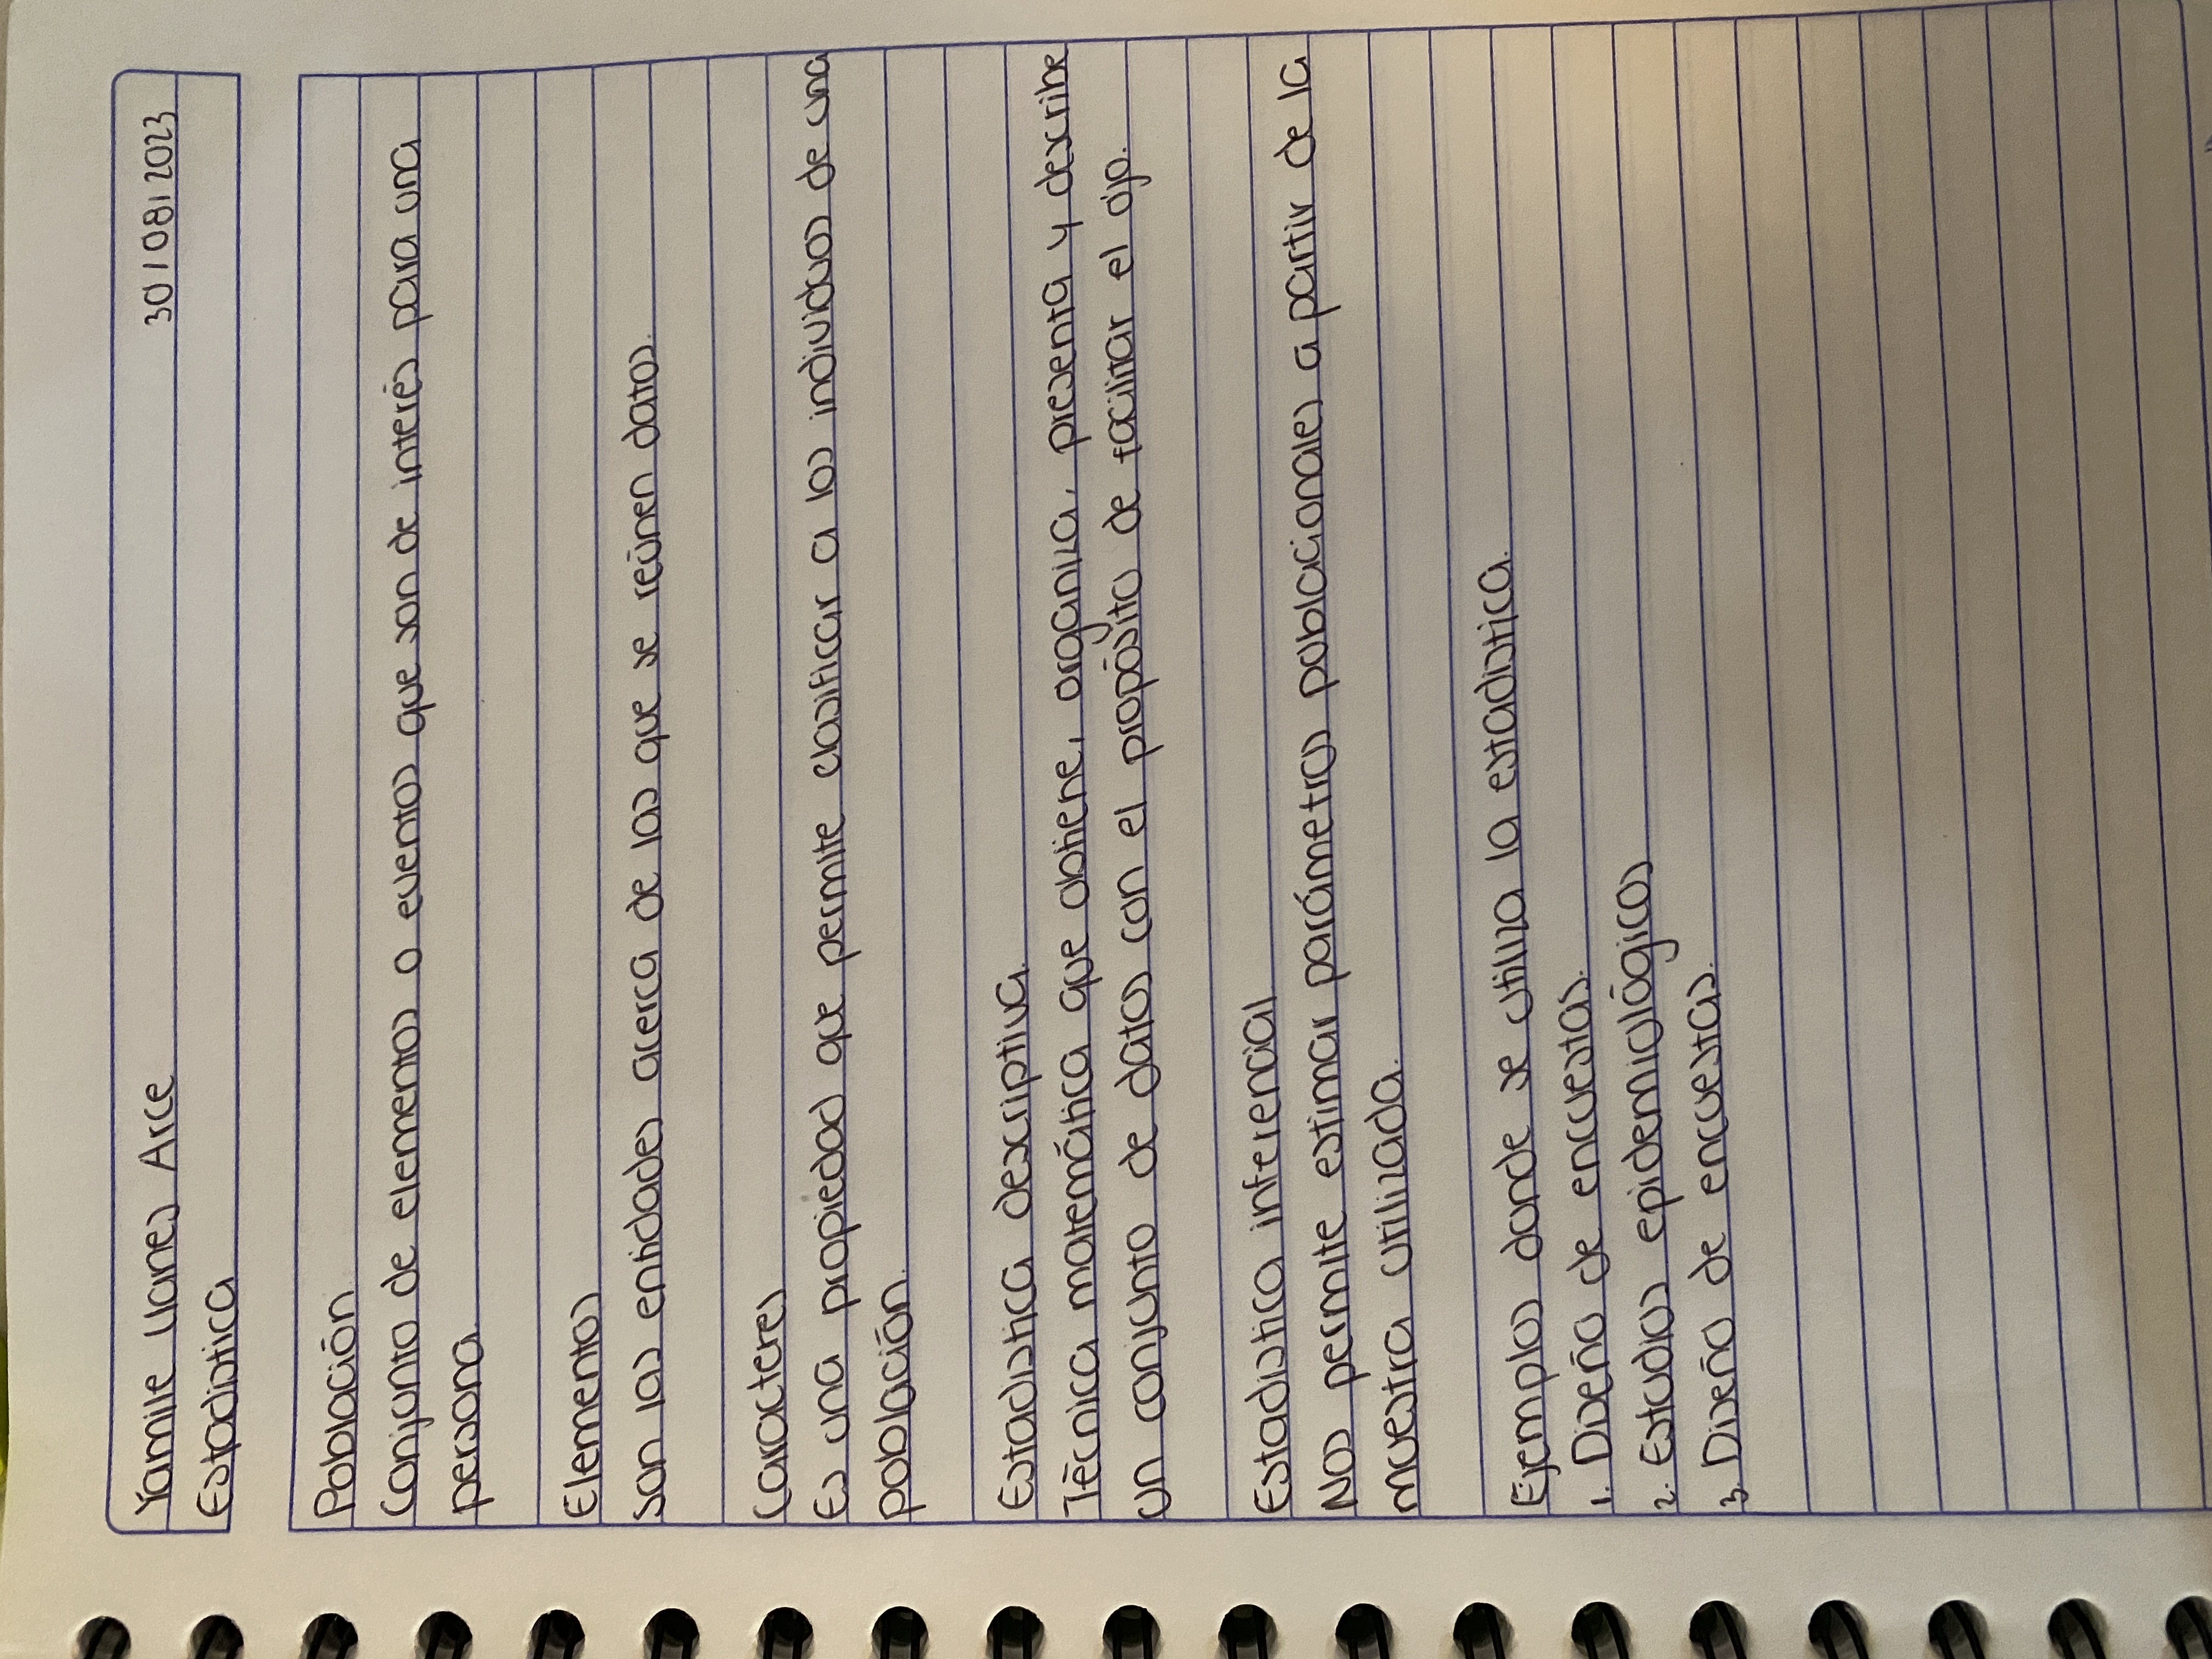 Yamile Uanes Arce 30/08/2023
Estadística
Población.
Conjunto de elementos o eventos que son de interés para una
persona.
Elementos
Son las entidades acerca de las que se reúnen datos.
Caracteres
Es una propiedad que permite clasificar a los individuos de una
población.
Estadística descriptiva.
Técnica matemática que obtiene, organiza, presenta y describe
un conjunto de datos con el propósito de facilitar el ojo.
Estadística inferencial
Nos permite estimar parámetros poblacionales a partir de la
muestra utilizada.
Ejemplos donde se utiliza la estadística.
1. Diseño de encuestas.
2. Estudios epidemiológicos
3. Diseño de encuestas.